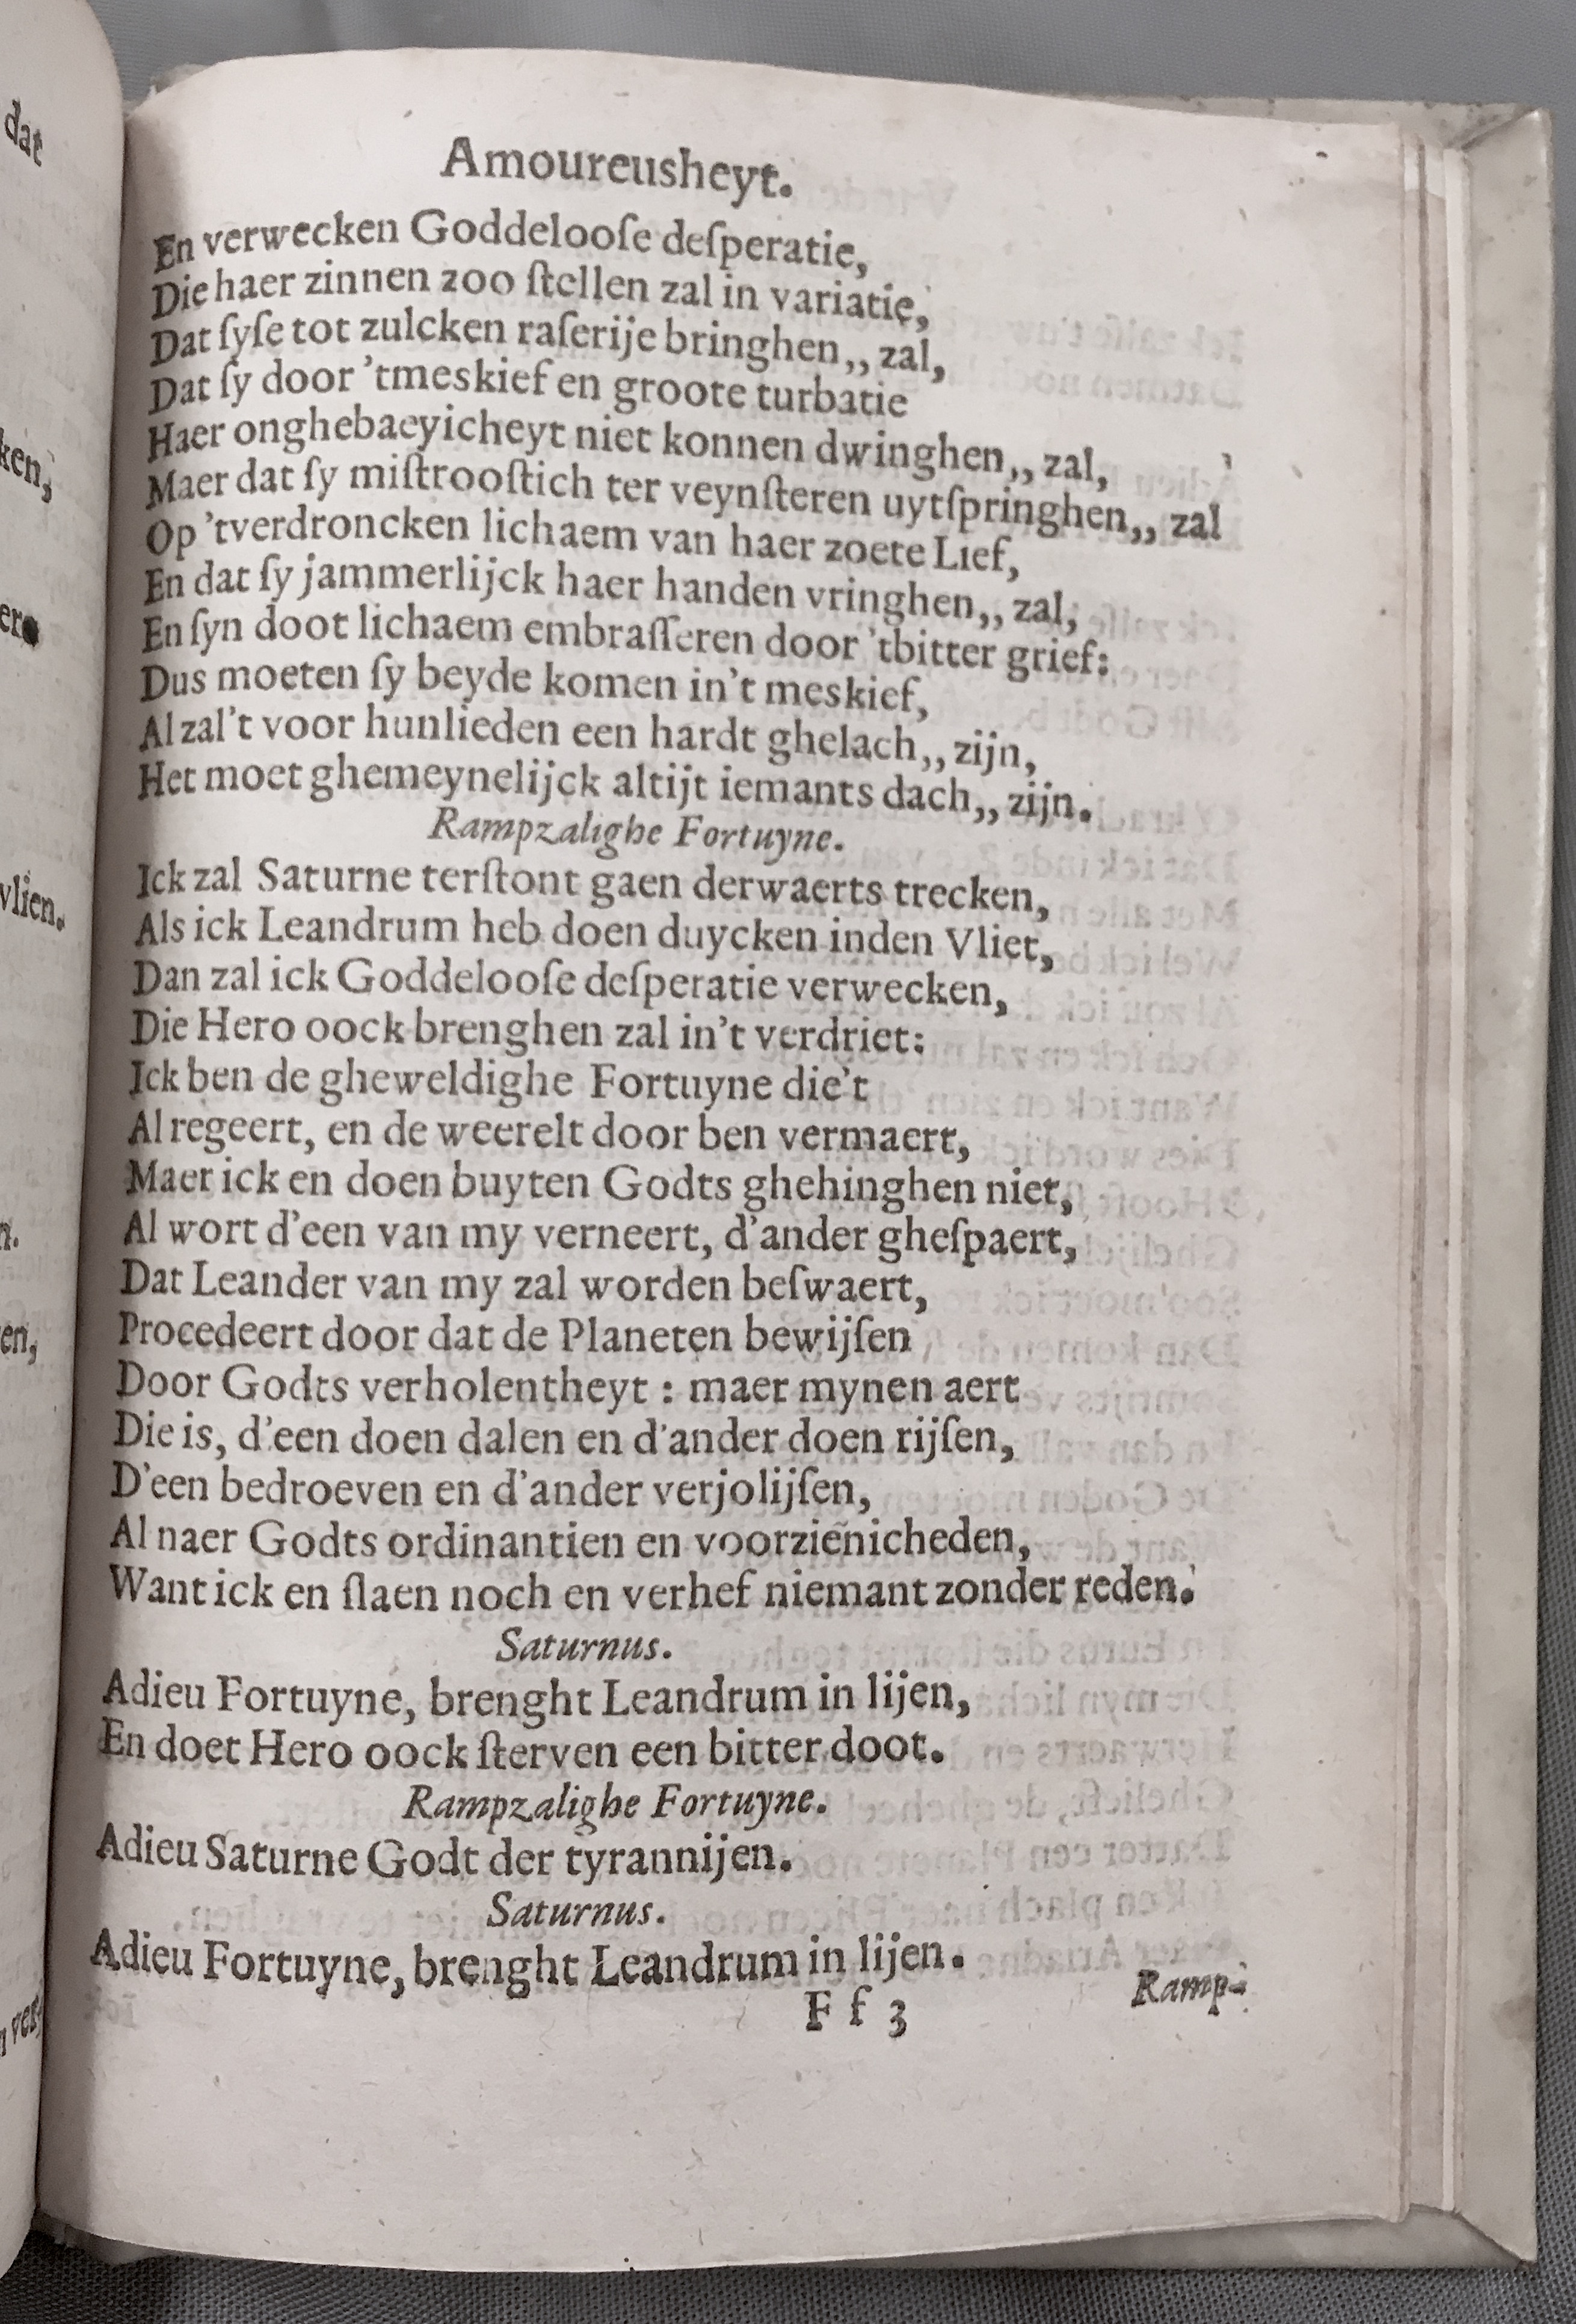 Amoureusheyt.
En verwecken Goddelooſe deſperatie,
Die haer zinnen zoo ſtellen zal in variatie,
Dat ſyſe tot zulcken raſerije bringhen,, zal,
Dat ſy door 'tmeskief en groote turbatie
Haer onghebaeyicheyt niet konnen dwinghen,, zal,
Maer dat ſy miſtrooſtich ter veynſteren uytſpringhen,, zal
Op 'tverdroncken lichaem van haer zoete Lief,
En dat ſy jammerlijck haer handen vringhen,, zal,
En ſyn doot lichaem embraſſeren door 'tbitter grief:
Dus moeten ſy beyde komen in't meskief,
Al zal't voor hunlieden een hardt ghelach,, zijn,
Het moet ghemeynelijck altijt iemants dach,, zijn.
Rampzalighe Fortuyne.
Ick zal Saturne terſtont gaen derwaerts trecken,
Als ick Leandrum heb doen duycken inden Vliet,
Dan zal ick Goddelooſe deſperatie verwecken,
Die Hero oock brenghen zal in't verdriet:
Ick ben de gheweldighe Fortuyne die't
Al regeert, en de weerelt door ben vermaert,
Maer ick en doen buyten Godts ghehinghen niet,
Al wort d'een van my verneert, d'ander gheſpaert,
Dat Leander van my zal worden beſwaert,
Procedeert door dat de Planeten bewijſen
Door Godts verholentheyt : maer mynen aert
Die is, d'een doen dalen en d'ander doen rijſen,
D'een bedroeven en d'ander verjolijſen,
Al naer Godts ordinantien en voorzienicheden,
Want ick en ſlaen noch en verhef niemant zonder reden.
Saturnus.
Adieu Fortuyne, brenght Leandrum in lijen,
En doet Hero oock ſterven een bitter doot.
Rampzalighe Fortuyne.
Adieu Saturne Godt der tyrannijen.
Saturnus.
Adieu Fortuyne, brenght Leandrum in lijen.
F f 3
Ramp-